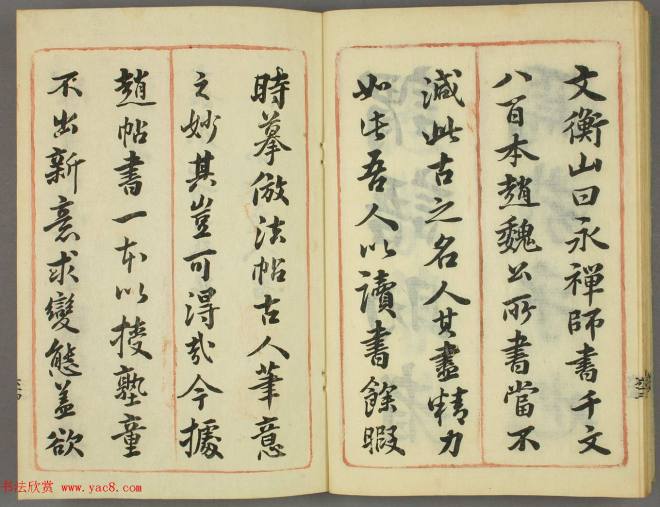 文衡山曰永禪師書千文
八百本趙魏公所書當不
減此古之名人其盡精力
如此吾人以讀書餘暇
時摹倣法帖古人筆意
之妙其豈可得哉今據
趙帖書一本以授塾童
不出新意求變態蓋欲
书法欣赏 www.yac8.com